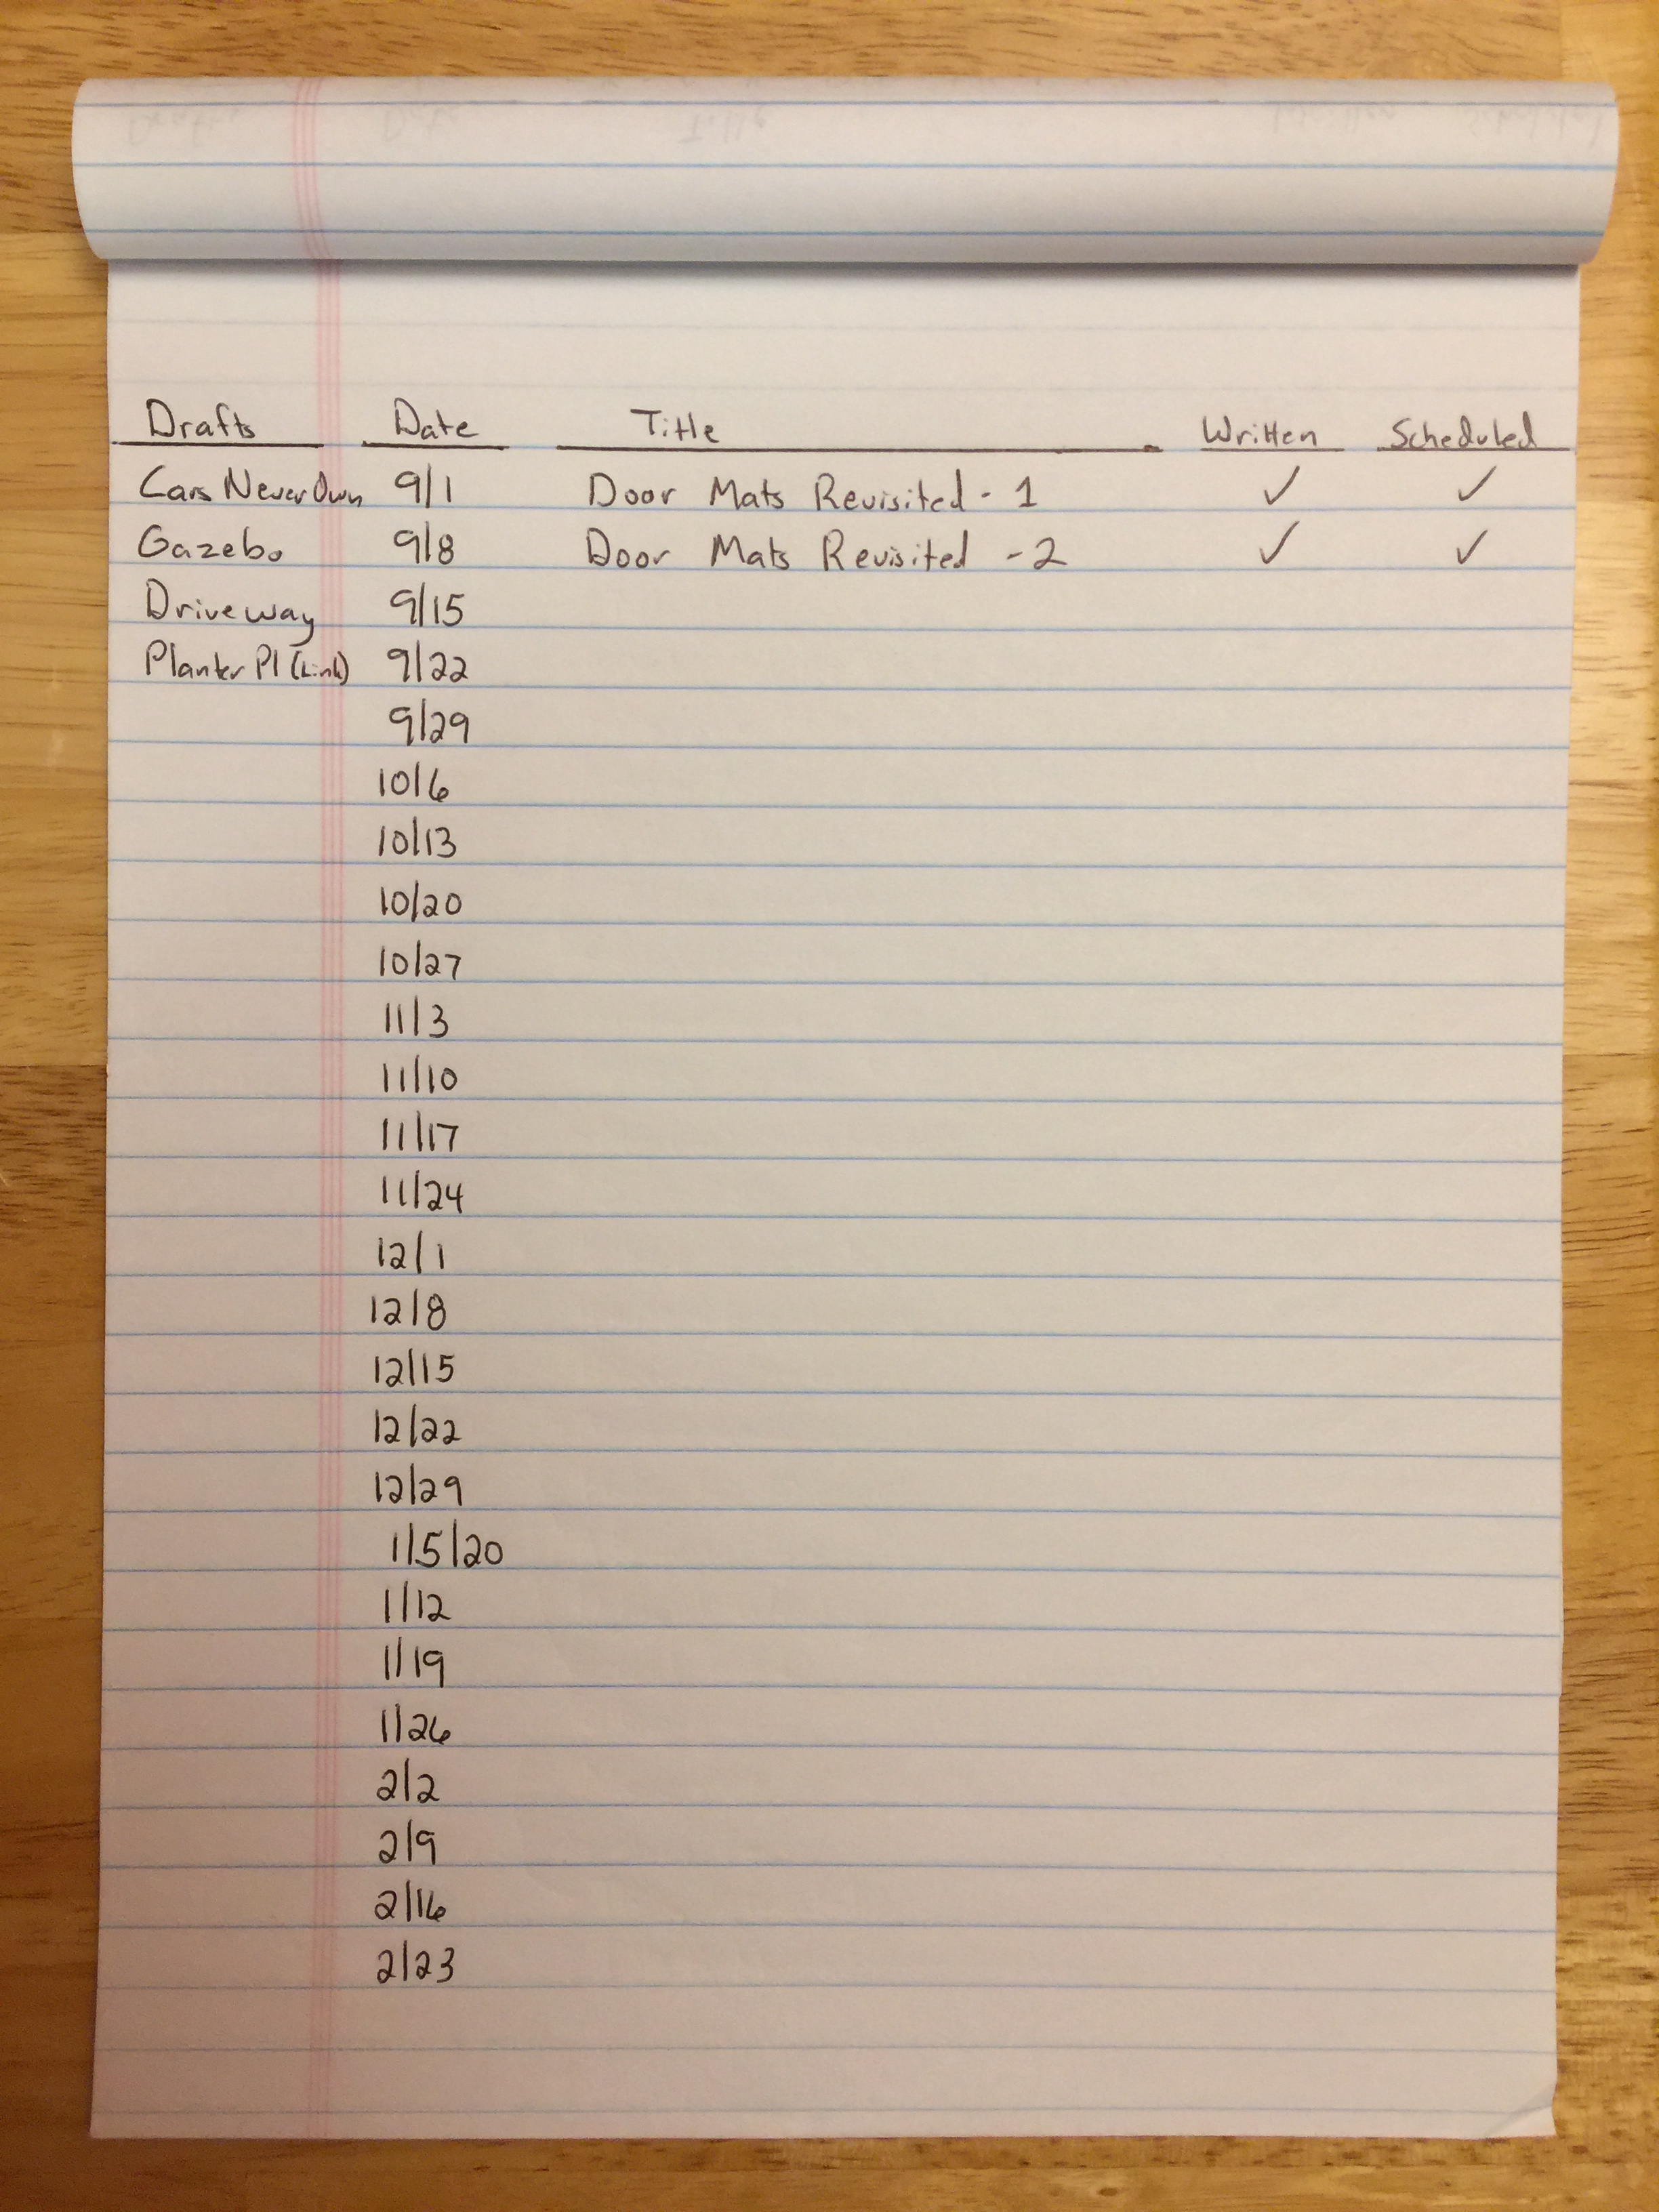 Drafts Date Title Written Scheduled
Cars Never Own 9/1 Door Mats Revisited - 1 ✓ ✓
Gazebo 9/8 Door Mats Revisited - 2 ✓ ✓
Driveway 9/15
Planter Pl (Link) 9/22
9/29
10/6
10/13
10/20
10/27
11/3
11/10
11/17
11/24
12/1
12/8
12/15
12/22
12/29
1/5/20
1/12
1/19
1/26
2/2
2/9
2/16
2/23